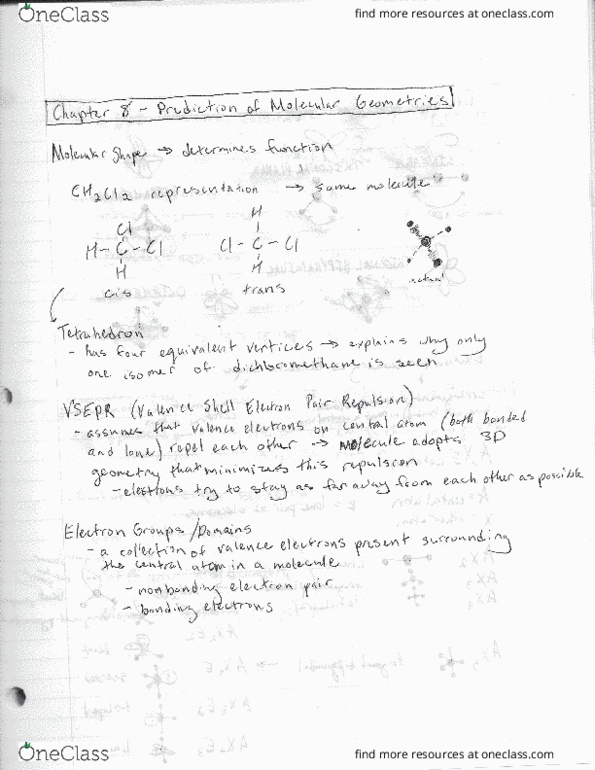 OneClass
find more resources at oneclass.com
Chapter 8 - Prediction of Molecular Geometries
Molecular Shape → determines function
CH2Cl2 representation → same molecule
Cl
H - C - Cl
H
cis
H
Cl - C - Cl
H
trans
actual
Tetrahedron
- has four equivalent vertices → explains why only
one isomer of dichloromethane is seen
VSEPR (Valence Shell Electron Pair Repulsion)
- assumes that valence electrons on central atom (both bonded
and lone) repel each other → molecule adopts 3D
geometry that minimizes this repulsion
- electrons try to stay as far away from each other as possible
Electron Groups / Domains
- a collection of valence electrons present surrounding
the central atom in a molecule
- nonbonding electron pair
- bonding electrons
OneClass
find more resources at oneclass.com